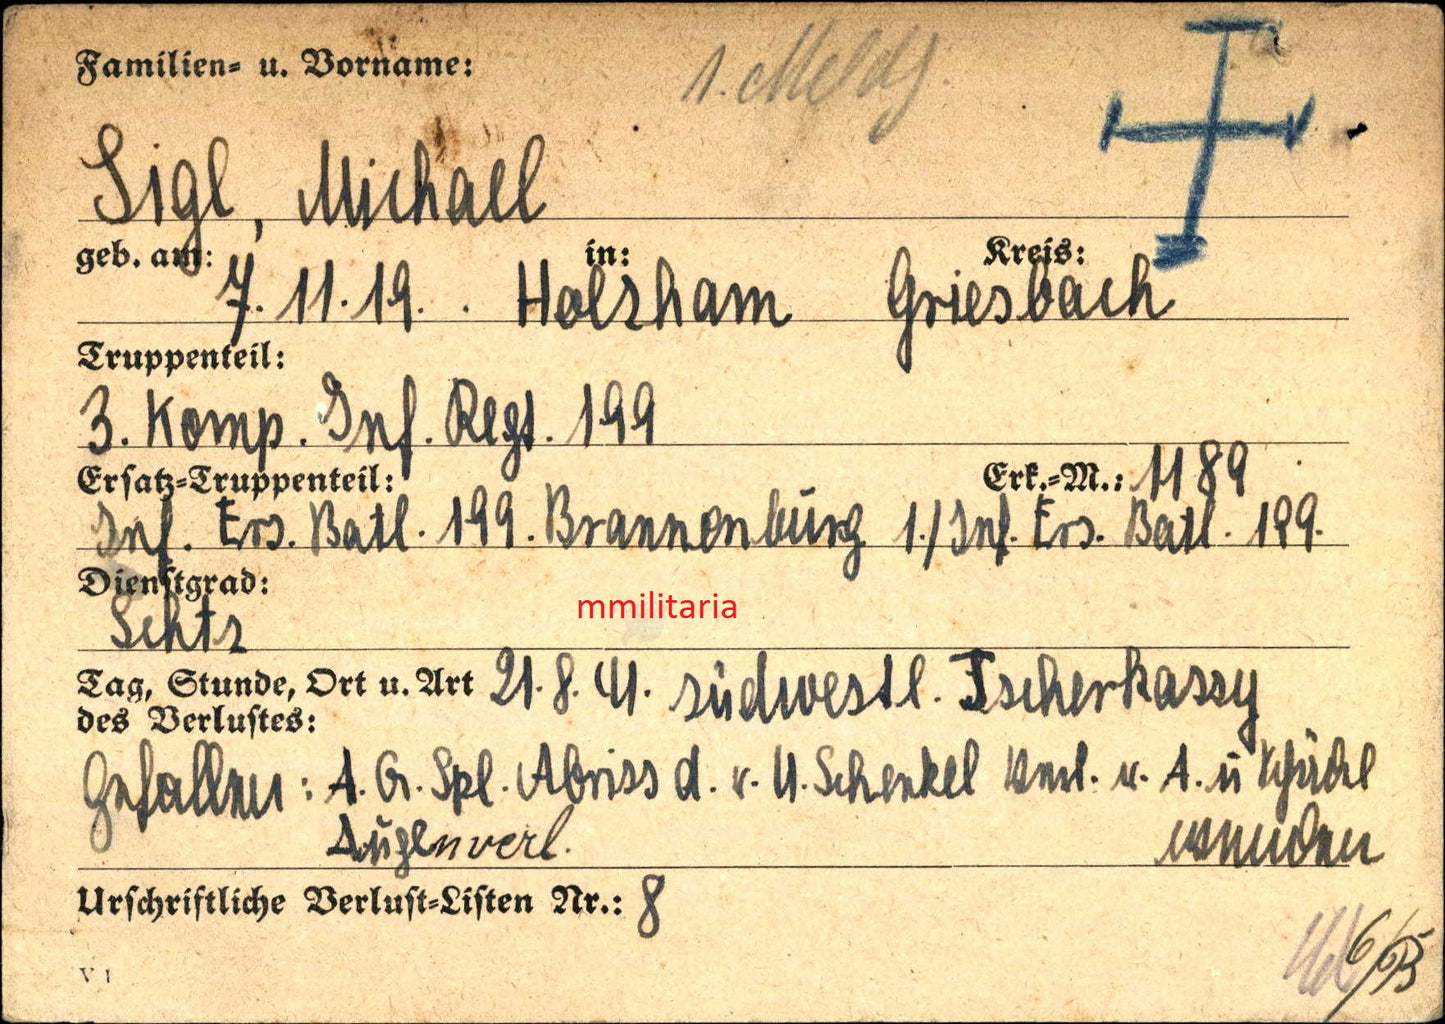 1. Meldg.
Familien- u. Vorname:
Sigl, Michael
geb. am: in: Kreis:
7. 11. 19. Holzham Griesbach
Truppenteil:
3. Komp. Inf. Regt. 199
Ersatz-Truppenteil: Erk.-M.: 1189
Inf. Ers. Batl. 199. Brannenburg 1./Inf. Ers. Batl. 199.
Dienstgrad:
Schtz
Tag, Stunde, Ort u. Art 21. 8. 41. südwestl. Tscherkassy
des Verlustes:
Gefallen: A. G. Spl. Abriss d. r. U. Schenkel Verl. r. A. u Schädel
Augenverl. wunden
Urschriftliche Verlust-Listen Nr.: 8
V 1
mmilitaria